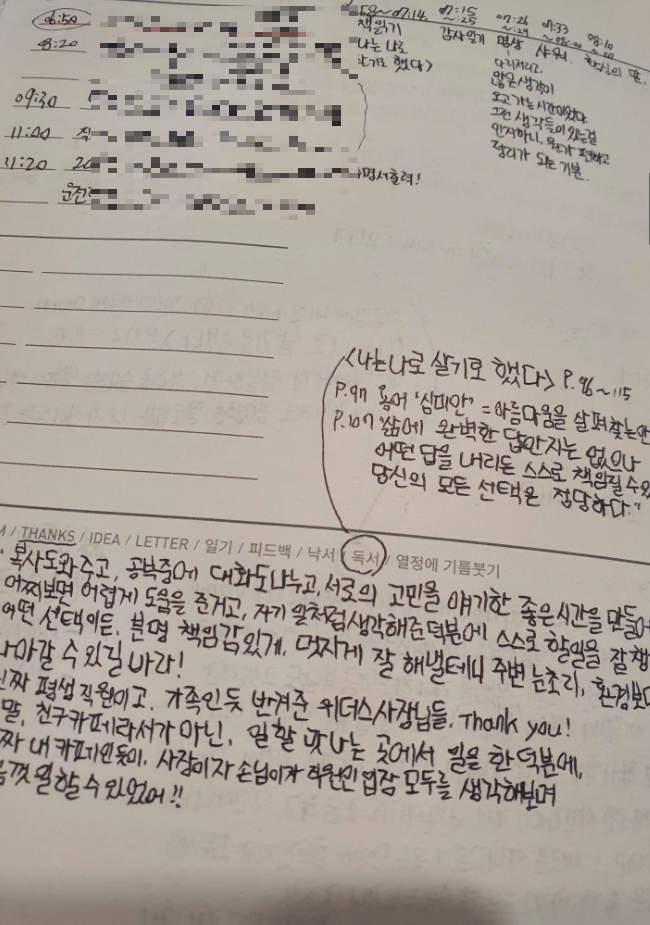 06:50
08:20
09:30
11:00 직
11:20 20
운전
~07:14
책읽기
나는 나로
살기로 했다>
07:15
~:25
감사일기
07:26
~:29
명상
07:33
~08:00
샤워
08:10
~20
많은 생각이
오고가는 시간이었다.
그런 생각들이 있는걸
인지하니, 뭔가 편하고
정리가 되는 기분.
명서출력!
<나는 나로 살기로 했다> P.96~115
P.97 용어 '심미안' = 아름다움을 살펴찾는안
P.107 "삶에 완벽한 답안지는 없으나
어떤 답을 내리든 스스로 책임질 수 있
당신의 모든 선택은 정당하다."
M / THANKS / IDEA / LETTER / 일기 / 피드백 / 낙서 / 독서 / 열정에 기름붓기
· 복사도와주고, 공부중에 대화도나누고, 서로의 고민을 얘기한 좋은시간을 만들어
어찌보면 어렵게 도움을 준거고, 자기 일처럼생각해준덕분에 스스로 할일을 잘챙
어떤 선택이든, 분명 책임감있게, 멋지게 잘 해낼테니 주변 눈초리, 환경보다
나아갈 수 있길 바라!
진짜 평생 직원이고, 가족인듯 반겨준 위더스사장님들, Thank you!
말, 친구카페라서가 아닌, 일할 맛 나는 곳에서 일을 한 덕분에,
짜 내 카페인듯이, 사장이자 손님이자 직원인 입장 모두를 생각해보며
음껏 일할 수 있었어!!